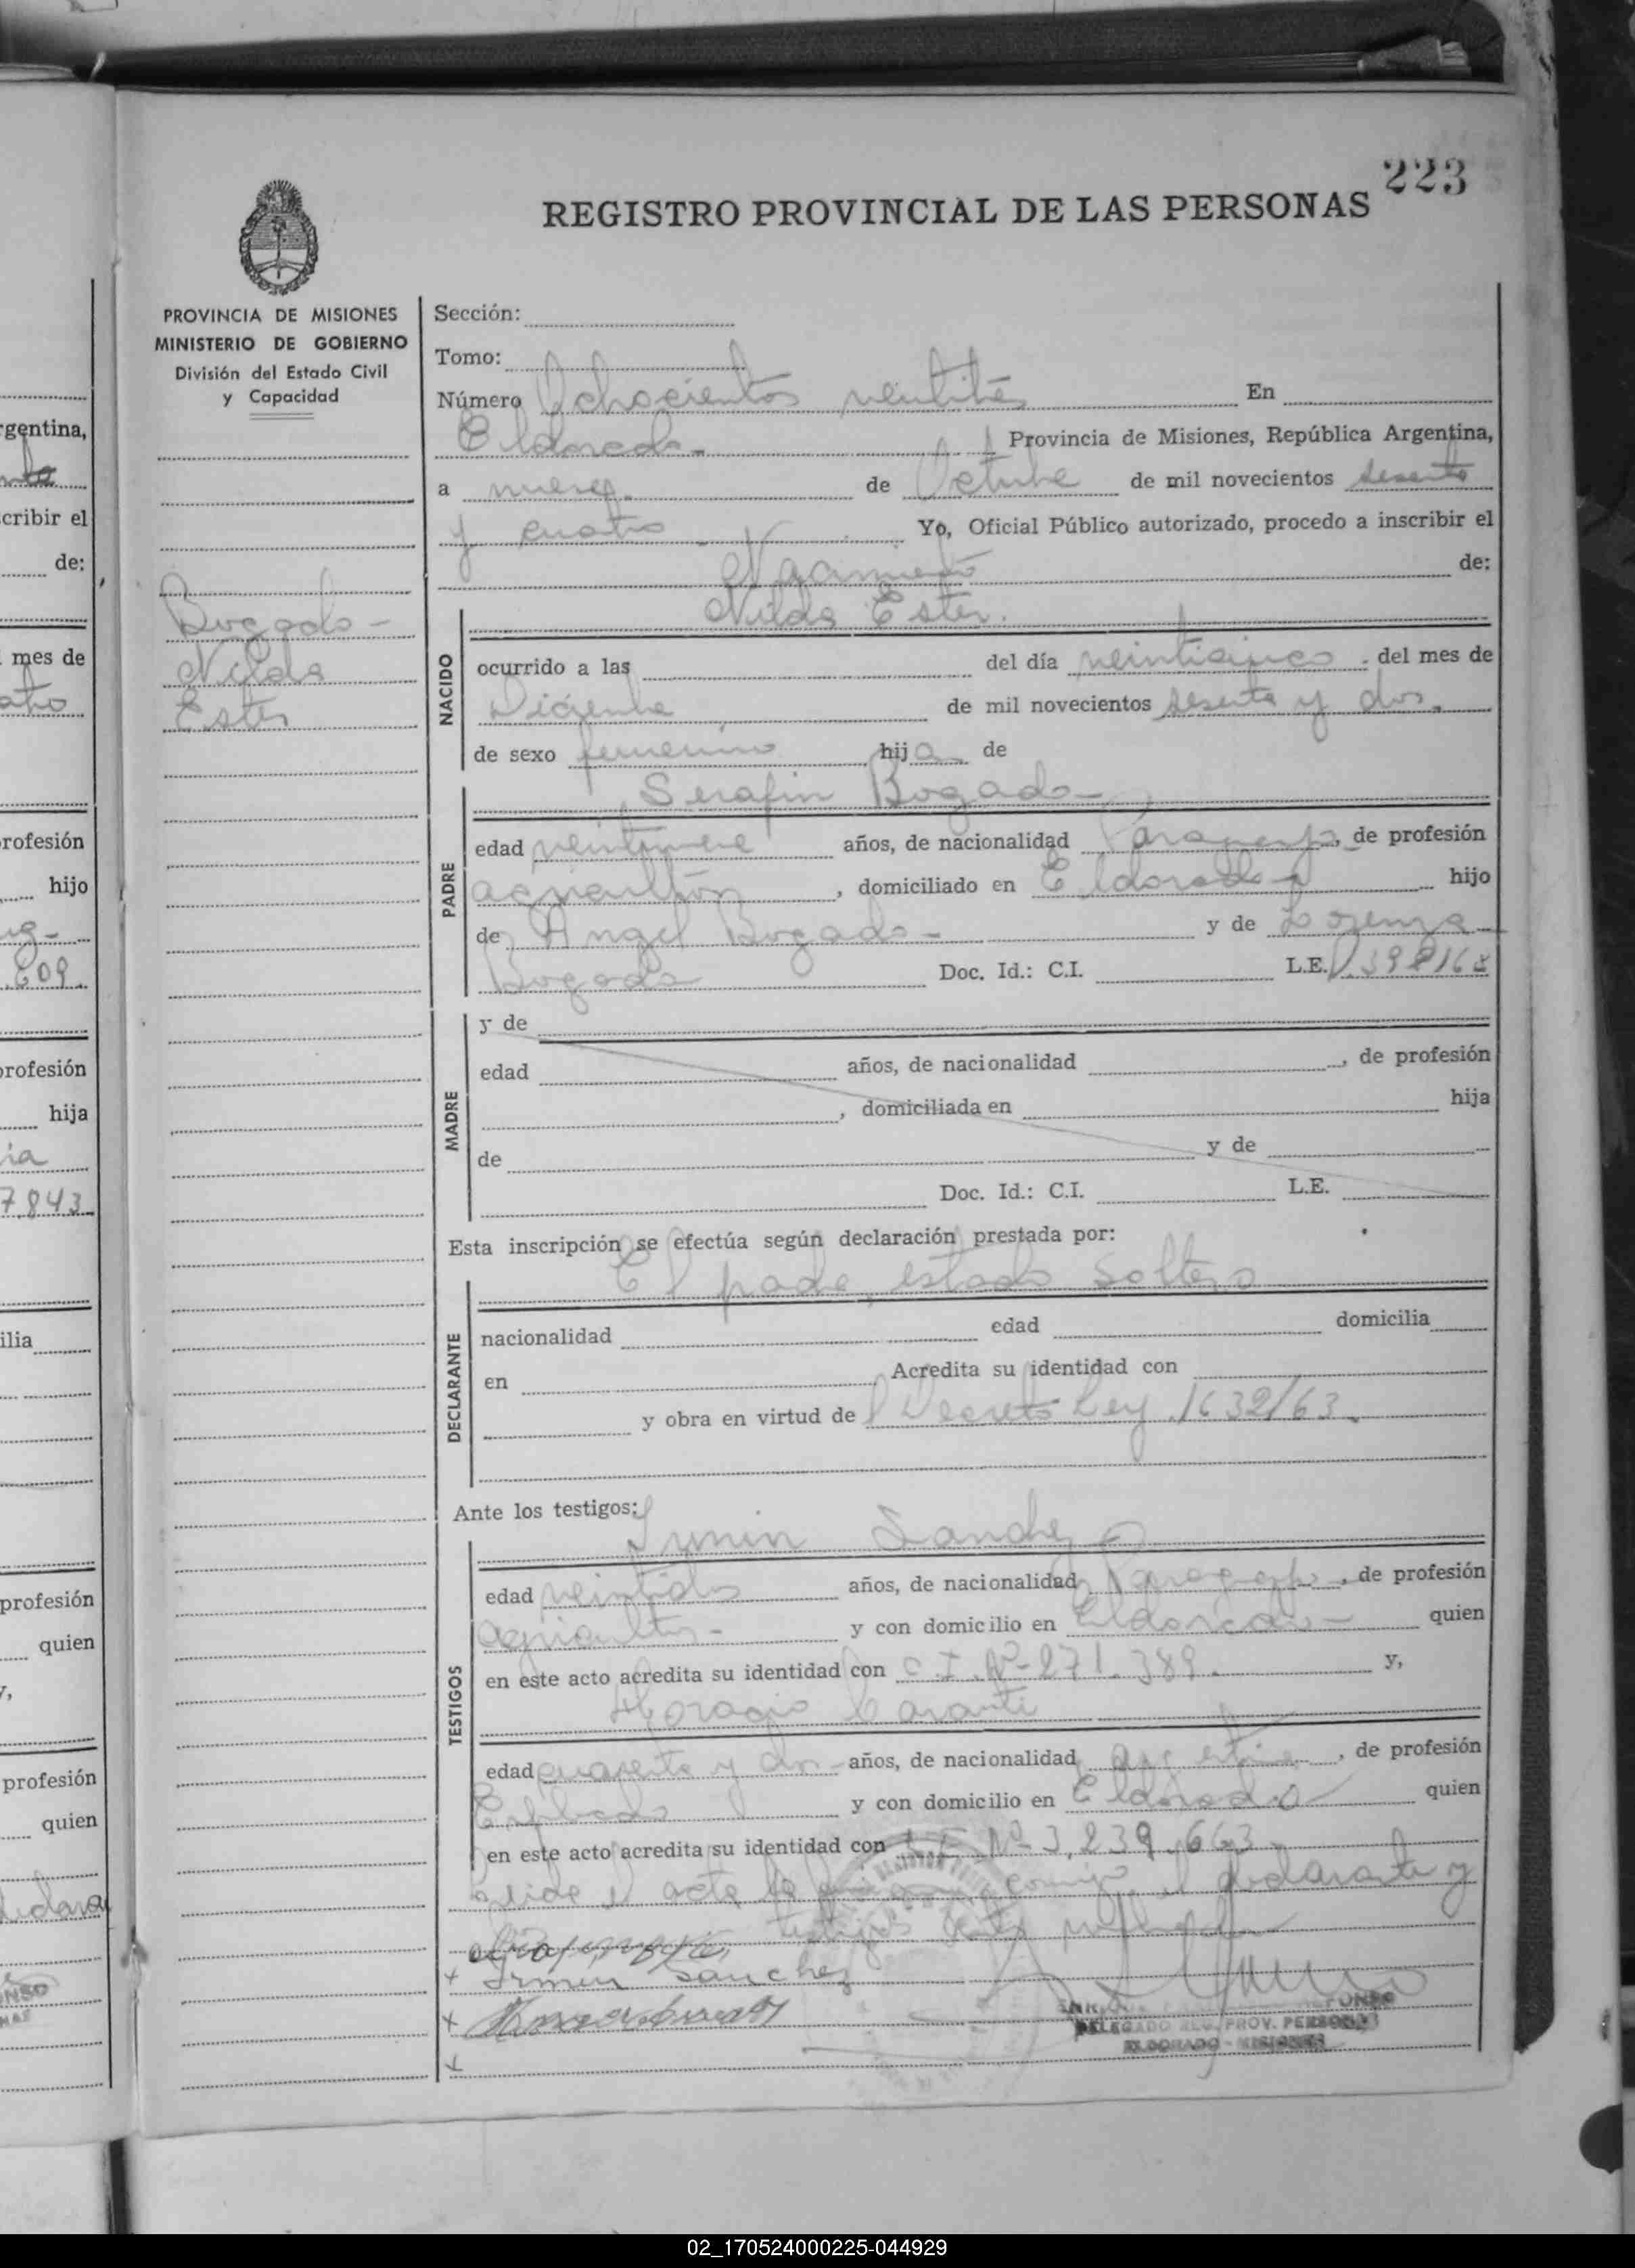 223
REGISTRO PROVINCIAL DE LAS PERSONAS
PROVINCIA DE MISIONES
MINISTERIO DE GOBIERNO
División del Estado Civil
y Capacidad
Bogado -
Nilda
Ester
Sección:
Tomo:
Número Ochocientos En
Eldorado - Provincia de Misiones, República Argentina,
a nueve de Octubre de mil novecientos sesenta
y cuatro - Yo, Oficial Público autorizado, procedo a inscribir el
Nacimiento de:
Nilda Ester.
NACIDO
ocurrido a las del día veinticinco del mes de
Diciembre de mil novecientos sesenta y dos.
de sexo femenino hija de
PADRE
Serafin Bogado -
edad años, de nacionalidad Paraguaya, de profesión
agricultor, domiciliado en Eldorado hijo
de Angel Bogado - y de Lorenza
Bogado Doc. Id.: C.I. L.E.
MADRE
y de
edad años, de nacionalidad , de profesión
, domiciliada en hija
de y de
Doc. Id.: C.I. L.E.
Esta inscripción se efectúa según declaración prestada por:
El padre, estado soltero
DECLARANTE
nacionalidad edad domicilia
en Acredita su identidad con
y obra en virtud de Decreto Ley 1632/63.
Ante los testigos:
Irmin Sanchez
TESTIGOS
edad veintidos años, de nacionalidad Paraguayo, de profesión
agricultor - y con domicilio en Eldorado - quien
en este acto acredita su identidad con C.I. Nº 271.389. y,
Horacio
edad cuarenta y dos años, de nacionalidad argentina, de profesión
Empleado y con domicilio en Eldorado quien
en este acto acredita su identidad con L.E. Nº 3.239.663
el acta conmigo el declarante y
testigos
+ Irmin Sanchez
+
+
DELEGADO REG. PROV. PERSONAS
ELDORADO - MISIONES
rgentina,
cribir el
de:
mes de
rofesión
hijo
.609.
rofesión
hija
ia
7.843
ilia
profesión
quien
y,
profesión
quien
02_170524000225-044929